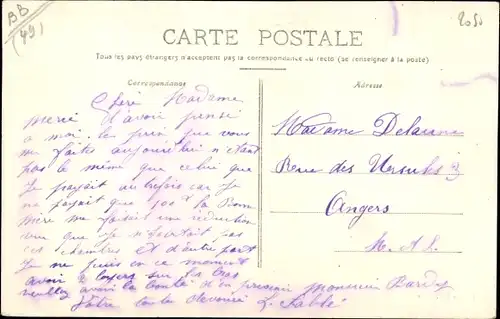 BB
(49)
2050
CARTE POSTALE
Tous les pays étrangers n'acceptent pas la correspondance au recto (se renseigner à la poste)
Correspondance
Adresse
Chère Madame
Merci d'avoir pensé
à moi. le prix que vous
me faites aujourd'hui n'étant
pas le même que celui que
je payait autrefois car je
ne payait que 30f la Bonne
Mère me faisait une réduction
vue que je n'habitait pas
ces chambres et d'autre part
je ne puis en ce moment
avoir 2 loyers sur les bras
veuillez avoir la bonté d'en prévenir monsieur Bardy
Votre toute dévouée L. Labbé
Madame
Rue des Ursules
Angers
M. & L.